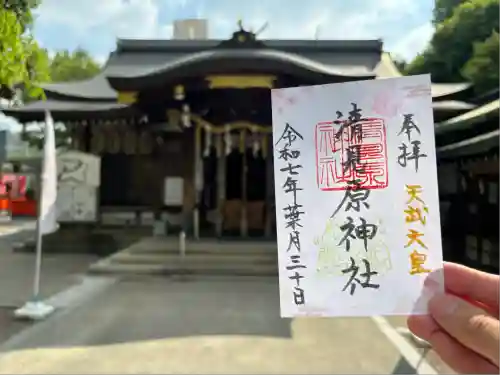 奉拝
天武天皇
清見原神社
令和七年葉月三十日